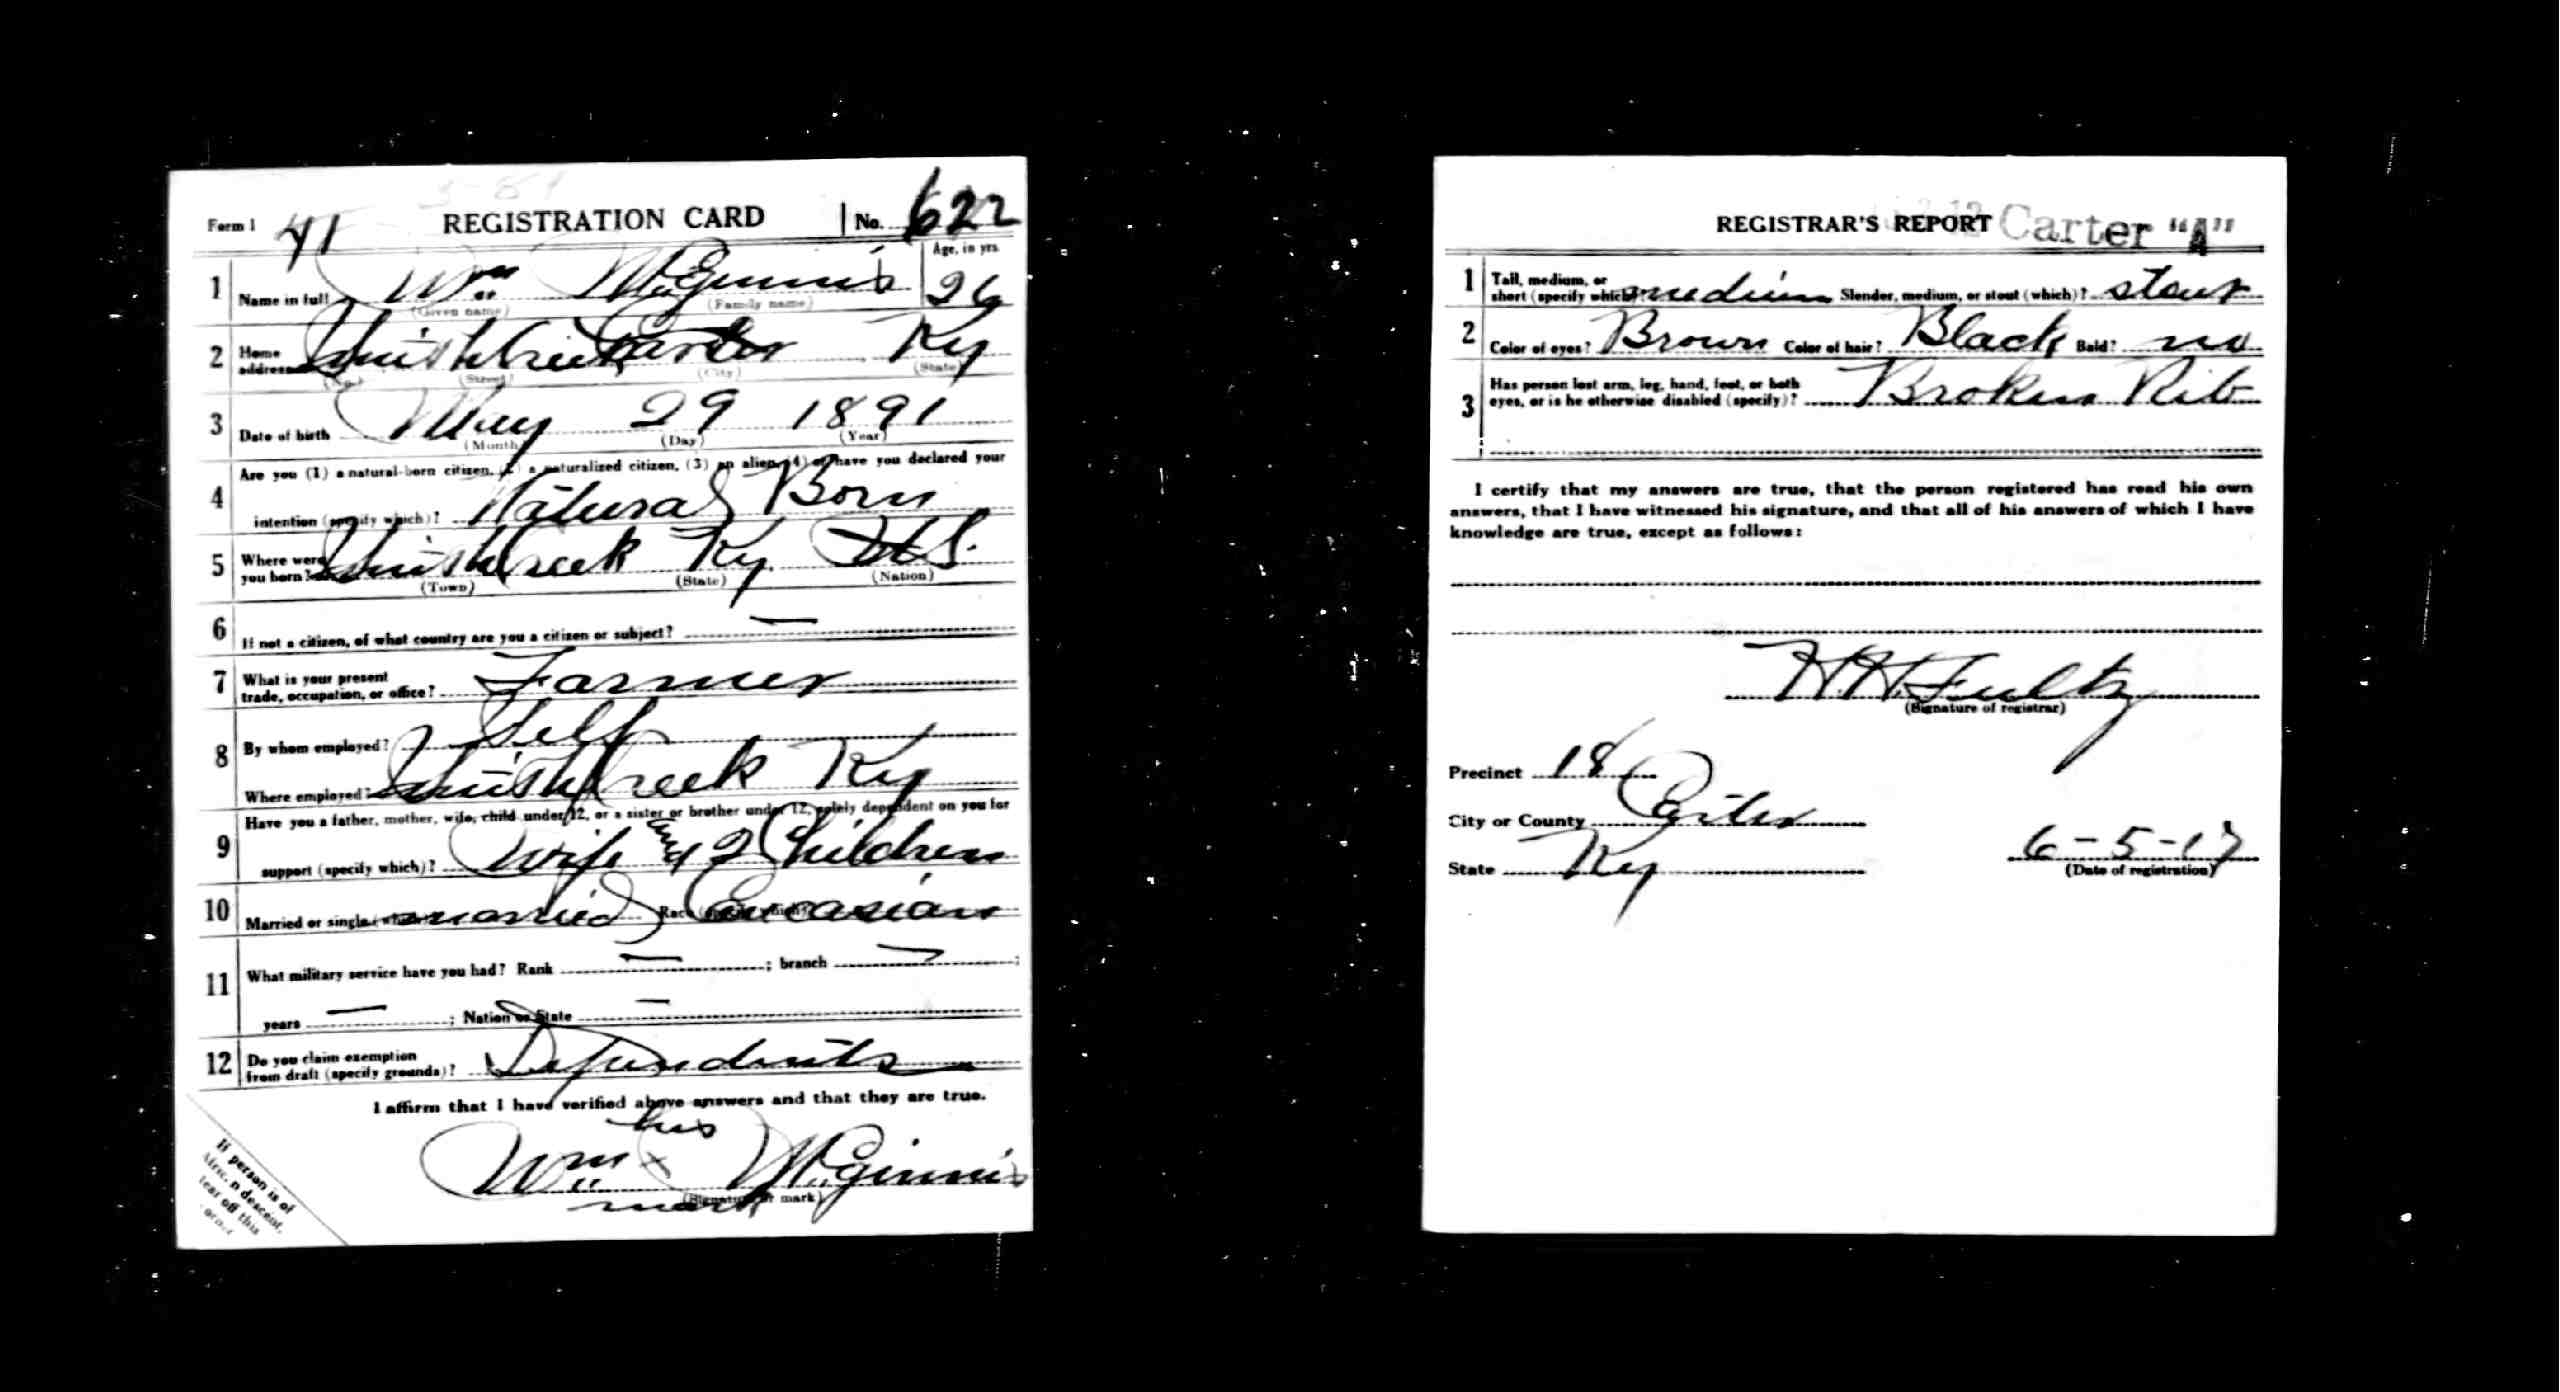 Form 1 41 REGISTRATION CARD No. 622
1 Name in full Wm McGinnis Age, in yrs. 26
(Given name) (Family name)
2 Home address Smith Creek Carter Ky
(No.) (Street) (City) (State)
3 Date of birth May 29 1891
(Month) (Day) (Year)
Are you (1) a natural-born citizen, (2) a naturalized citizen, (3) an alien, (4) or have you declared your
4 intention (specify which)? Natural Born
5 Where were you born? Smith Creek Ky U.S.
(Town) (State) (Nation)
6 If not a citizen, of what country are you a citizen or subject? —
7 What is your present
trade, occupation, or office? Farmer
8 By whom employed? Self
Where employed? Smith Creek Ky
Have you a father, mother, wife, child under 12, or a sister or brother under 12, solely dependent on you for
9 support (specify which)? Wife & 2 Children
10 Married or single (which)? married Race (specify which)? Caucasian
11 What military service have you had? Rank — ; branch — ;
years — ; Nation or State —
12 Do you claim exemption
from draft (specify grounds)? Dependents
I affirm that I have verified above answers and that they are true.
his
Wm x McGinnis
(Signature or mark)
mark
If person is of
African descent,
tear off this
corner
REGISTRAR'S REPORT Carter "A"
1 Tall, medium, or
short (specify which)? medium Slender, medium, or stout (which)? stout
2 Color of eyes? Brown Color of hair? Black Bald? no
3 Has person lost arm, leg, hand, foot, or both
eyes, or is he otherwise disabled (specify)? Broken Rib
I certify that my answers are true, that the person registered has read his own
answers, that I have witnessed his signature, and that all of his answers of which I have
knowledge are true, except as follows:
H.H. Fultz
(Signature of registrar)
Precinct 18
City or County Carter
State Ky 6-5-17
(Date of registration)